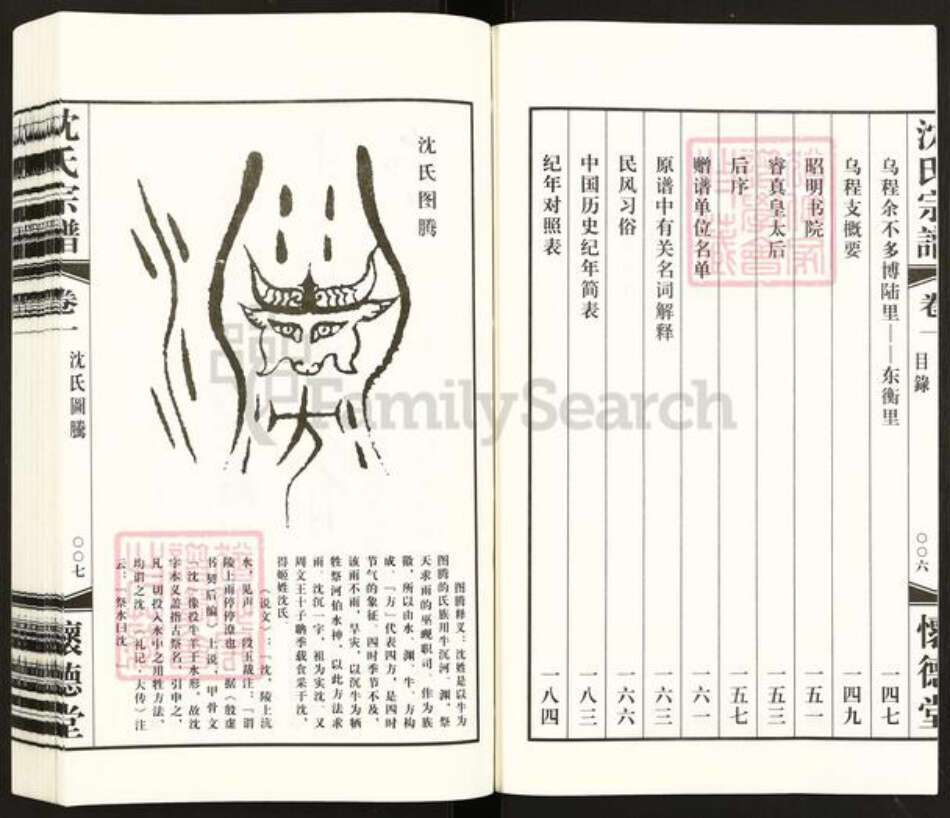 沈氏宗谱
卷一
目錄
〇〇六
懷德堂
乌程余不多博陆里——东衡里 一四七
乌程支概要 一四九
昭明书院 一五一
睿真皇太后 一五三
后序 一五七
赠谱单位名单 一六一
原谱中有关名词解释 一六三
民风习俗 一六六
中国历史纪年简表 一八三
纪年对照表 一八四
FamilySearch
沈氏图腾
图腾释义：沈姓是以牛为
图腾的氏族用牛沉河、渊、祭
天求雨的巫觋职司，作为族
徽，所以由水、渊、牛、方构
成，「方」代表四方，是四时
节气的象征，四时季节不及，
该雨不雨，旱灾，以沉牛为牺
牲祭河伯水神，以此方法求
雨。沈沉一字，祖为实沈，又
周文王十子聃季载食采于沈，
得姬姓沈氏
《说文》：「沈，陵上滈
水，见声」段玉裁注：「谓
陵上雨停停潦也」据《殷虚
书契后编》上说，甲骨文
「沈」像投牛羊于水形，故沈
字本义盖指古祭名，引申之，
凡一切投入水中之用牲方法，
均谓之沈《礼记·大传》注
云：「祭水曰沈」
沈氏宗譜
卷一
沈氏圖騰
〇〇七
懷德堂